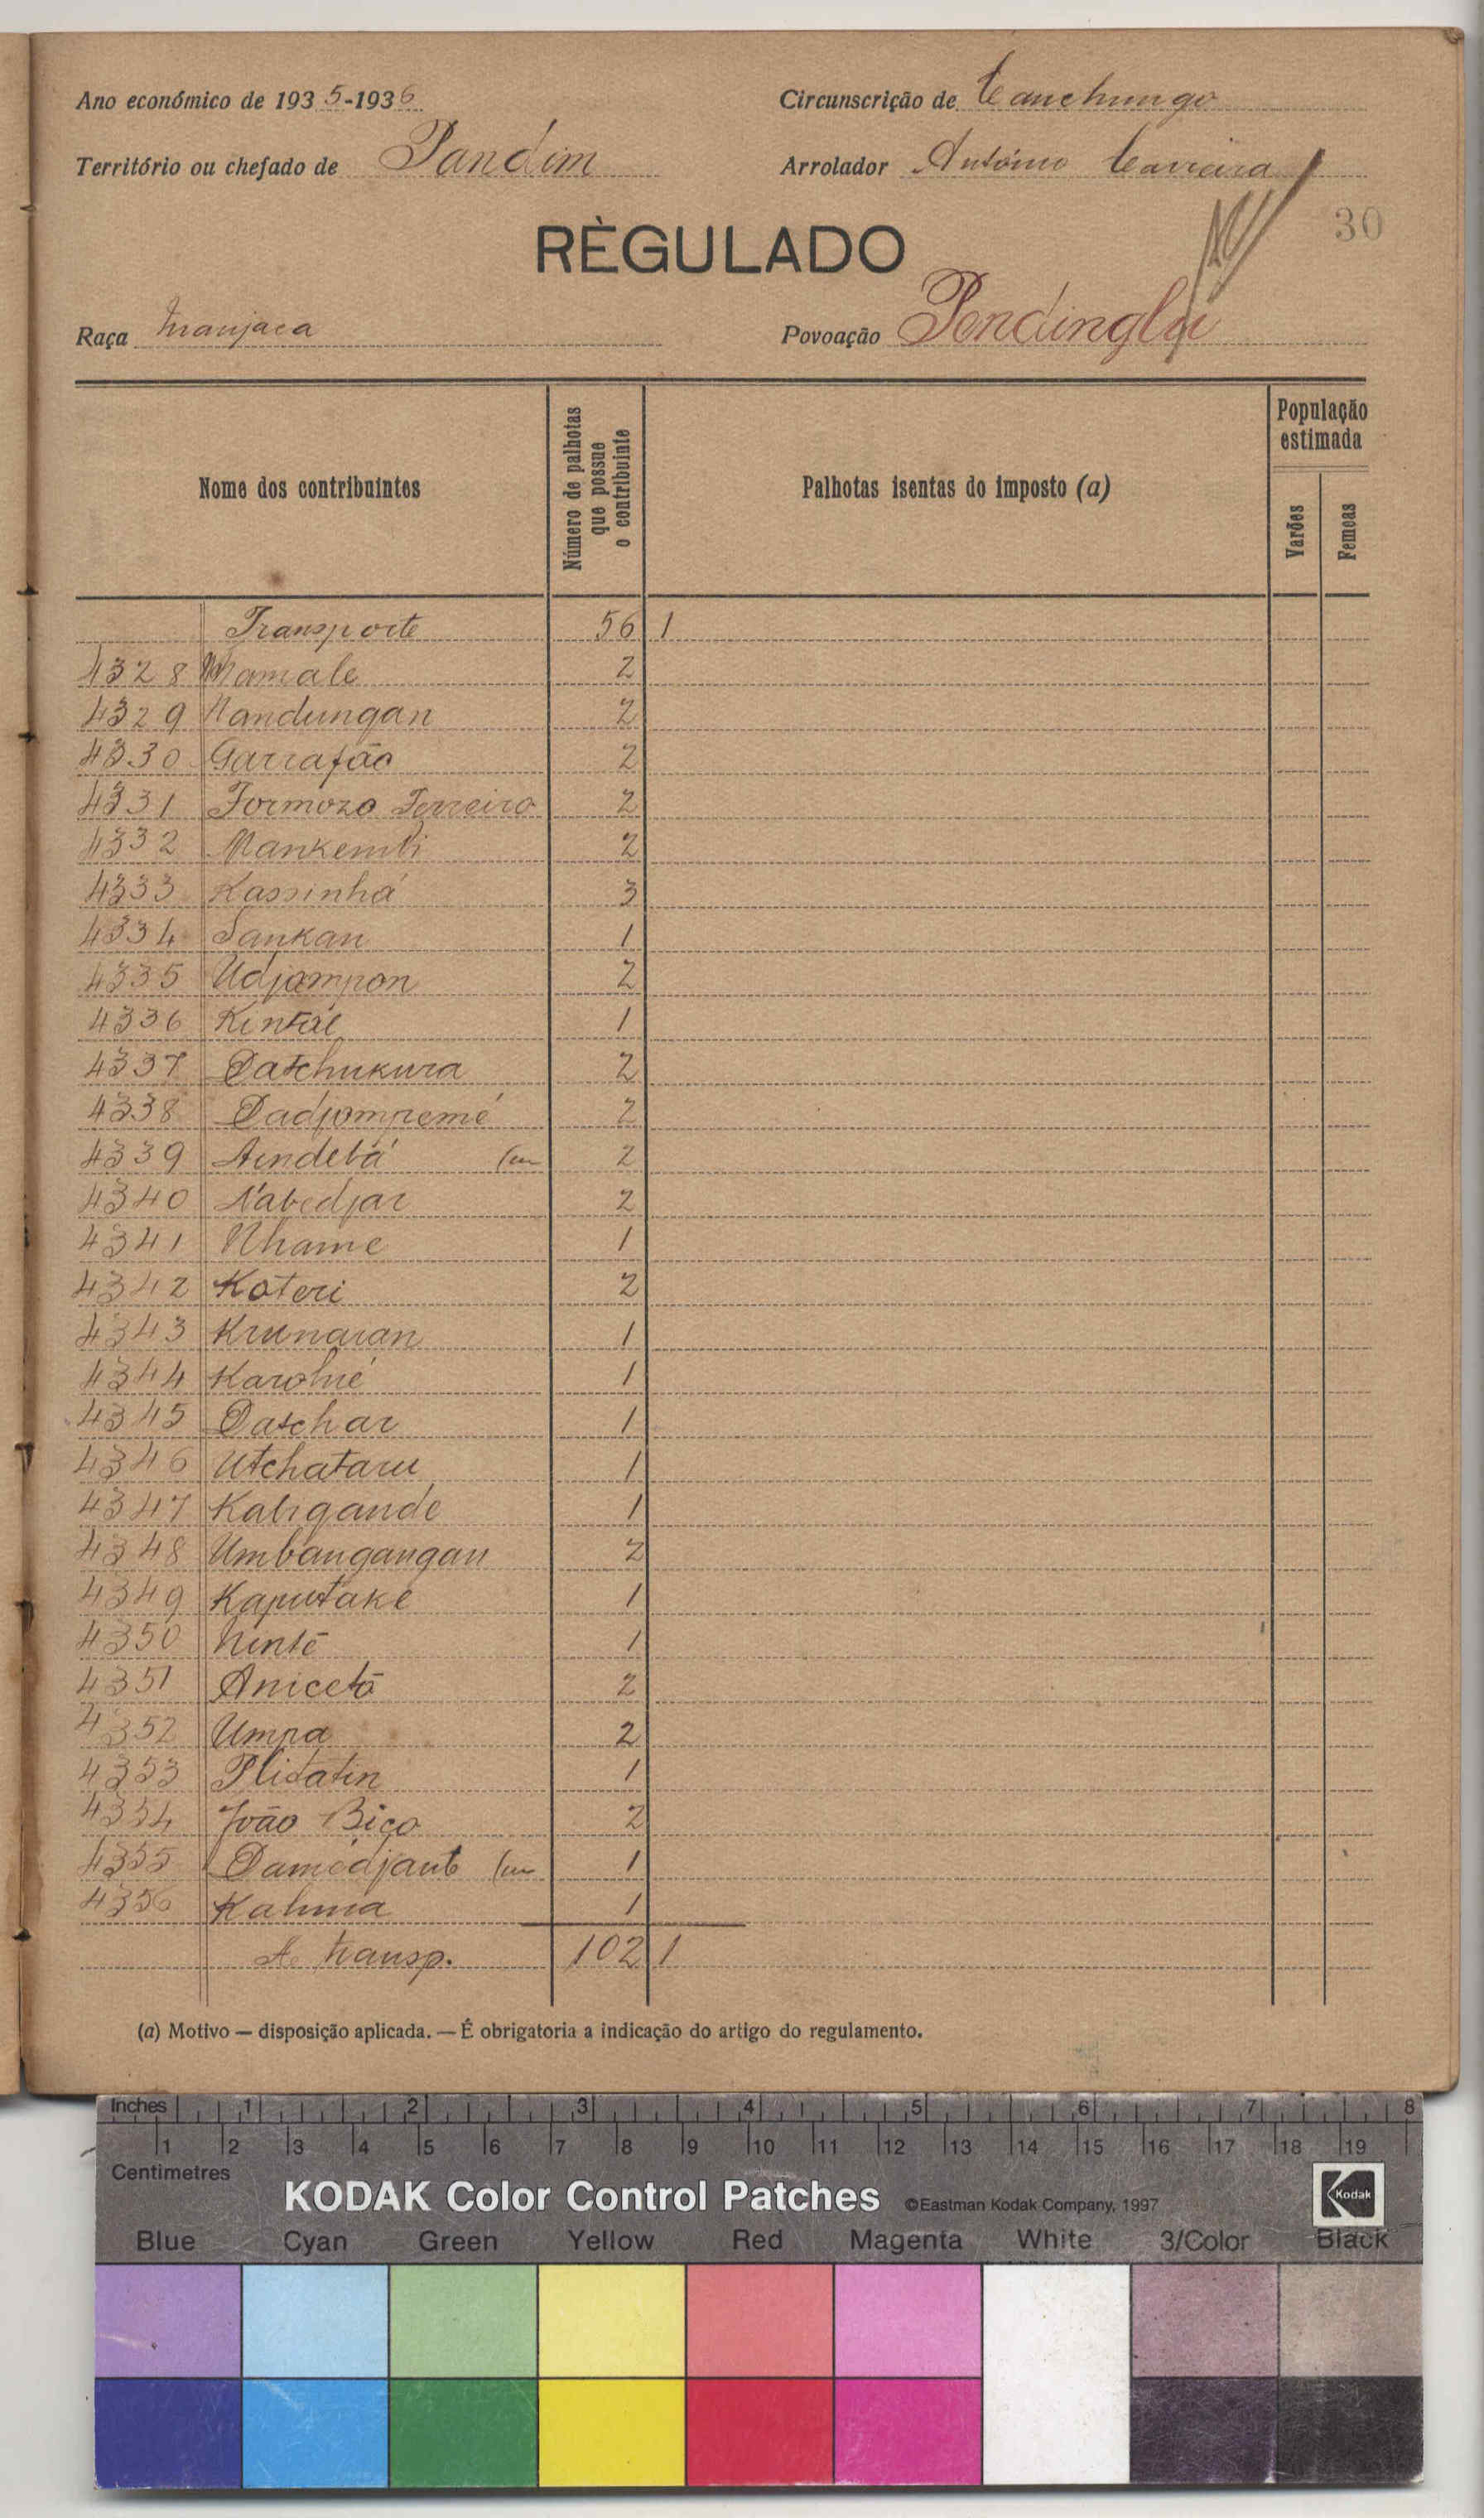 Ano económico de 1935-1936
Circunscrição de Canchungo
Território ou chefado de Pandim
Arrolador António Carreira
30
RÈGULADO
Raça Manjaca
Povoação Pendinglai
Nome dos contribuintes
Número de palhotas que possue o contribuinte
Palhotas isentas do imposto (a)
População estimada
Varões
Femeas
Transporte 56 1
4328 Mamale 2
4329 Nandungan 2
4330 Garrafão 2
4331 Formozo Ferreira 2
4332 Mankembi 2
4333 Kassinhá 3
4334 Sankan 1
4335 Udjampon 2
4336 Kintál 1
4337 Datchukura 2
4338 Dadjompemé 2
4339 Aindebá 2
4340 Nabedjar 2
4341 Nhame 1
4342 Koteri 2
4343 Krunaran 1
4344 Karolié 1
4345 Datchar 1
4346 Utchataru 1
4347 Kabigande 1
4348 Umbangangan 2
4349 Kaputake 1
4350 Nintê 1
4351 Anicetō 2
4352 Umpa 2
4353 Plidatin 1
4354 João Biço 2
4355 Damedjanti 1
4356 Kaluma 1
A transp. 102 1
(a) Motivo — disposição aplicada. — É obrigatoria a indicação do artigo do regulamento.
Inches 1 2 3 4 5 6 7 8
1 2 3 4 5 6 7 8 9 10 11 12 13 14 15 16 17 18 19
Centimetres
KODAK Color Control Patches ©Eastman Kodak Company, 1997 Kodak
Blue Cyan Green Yellow Red Magenta White 3/Color Black